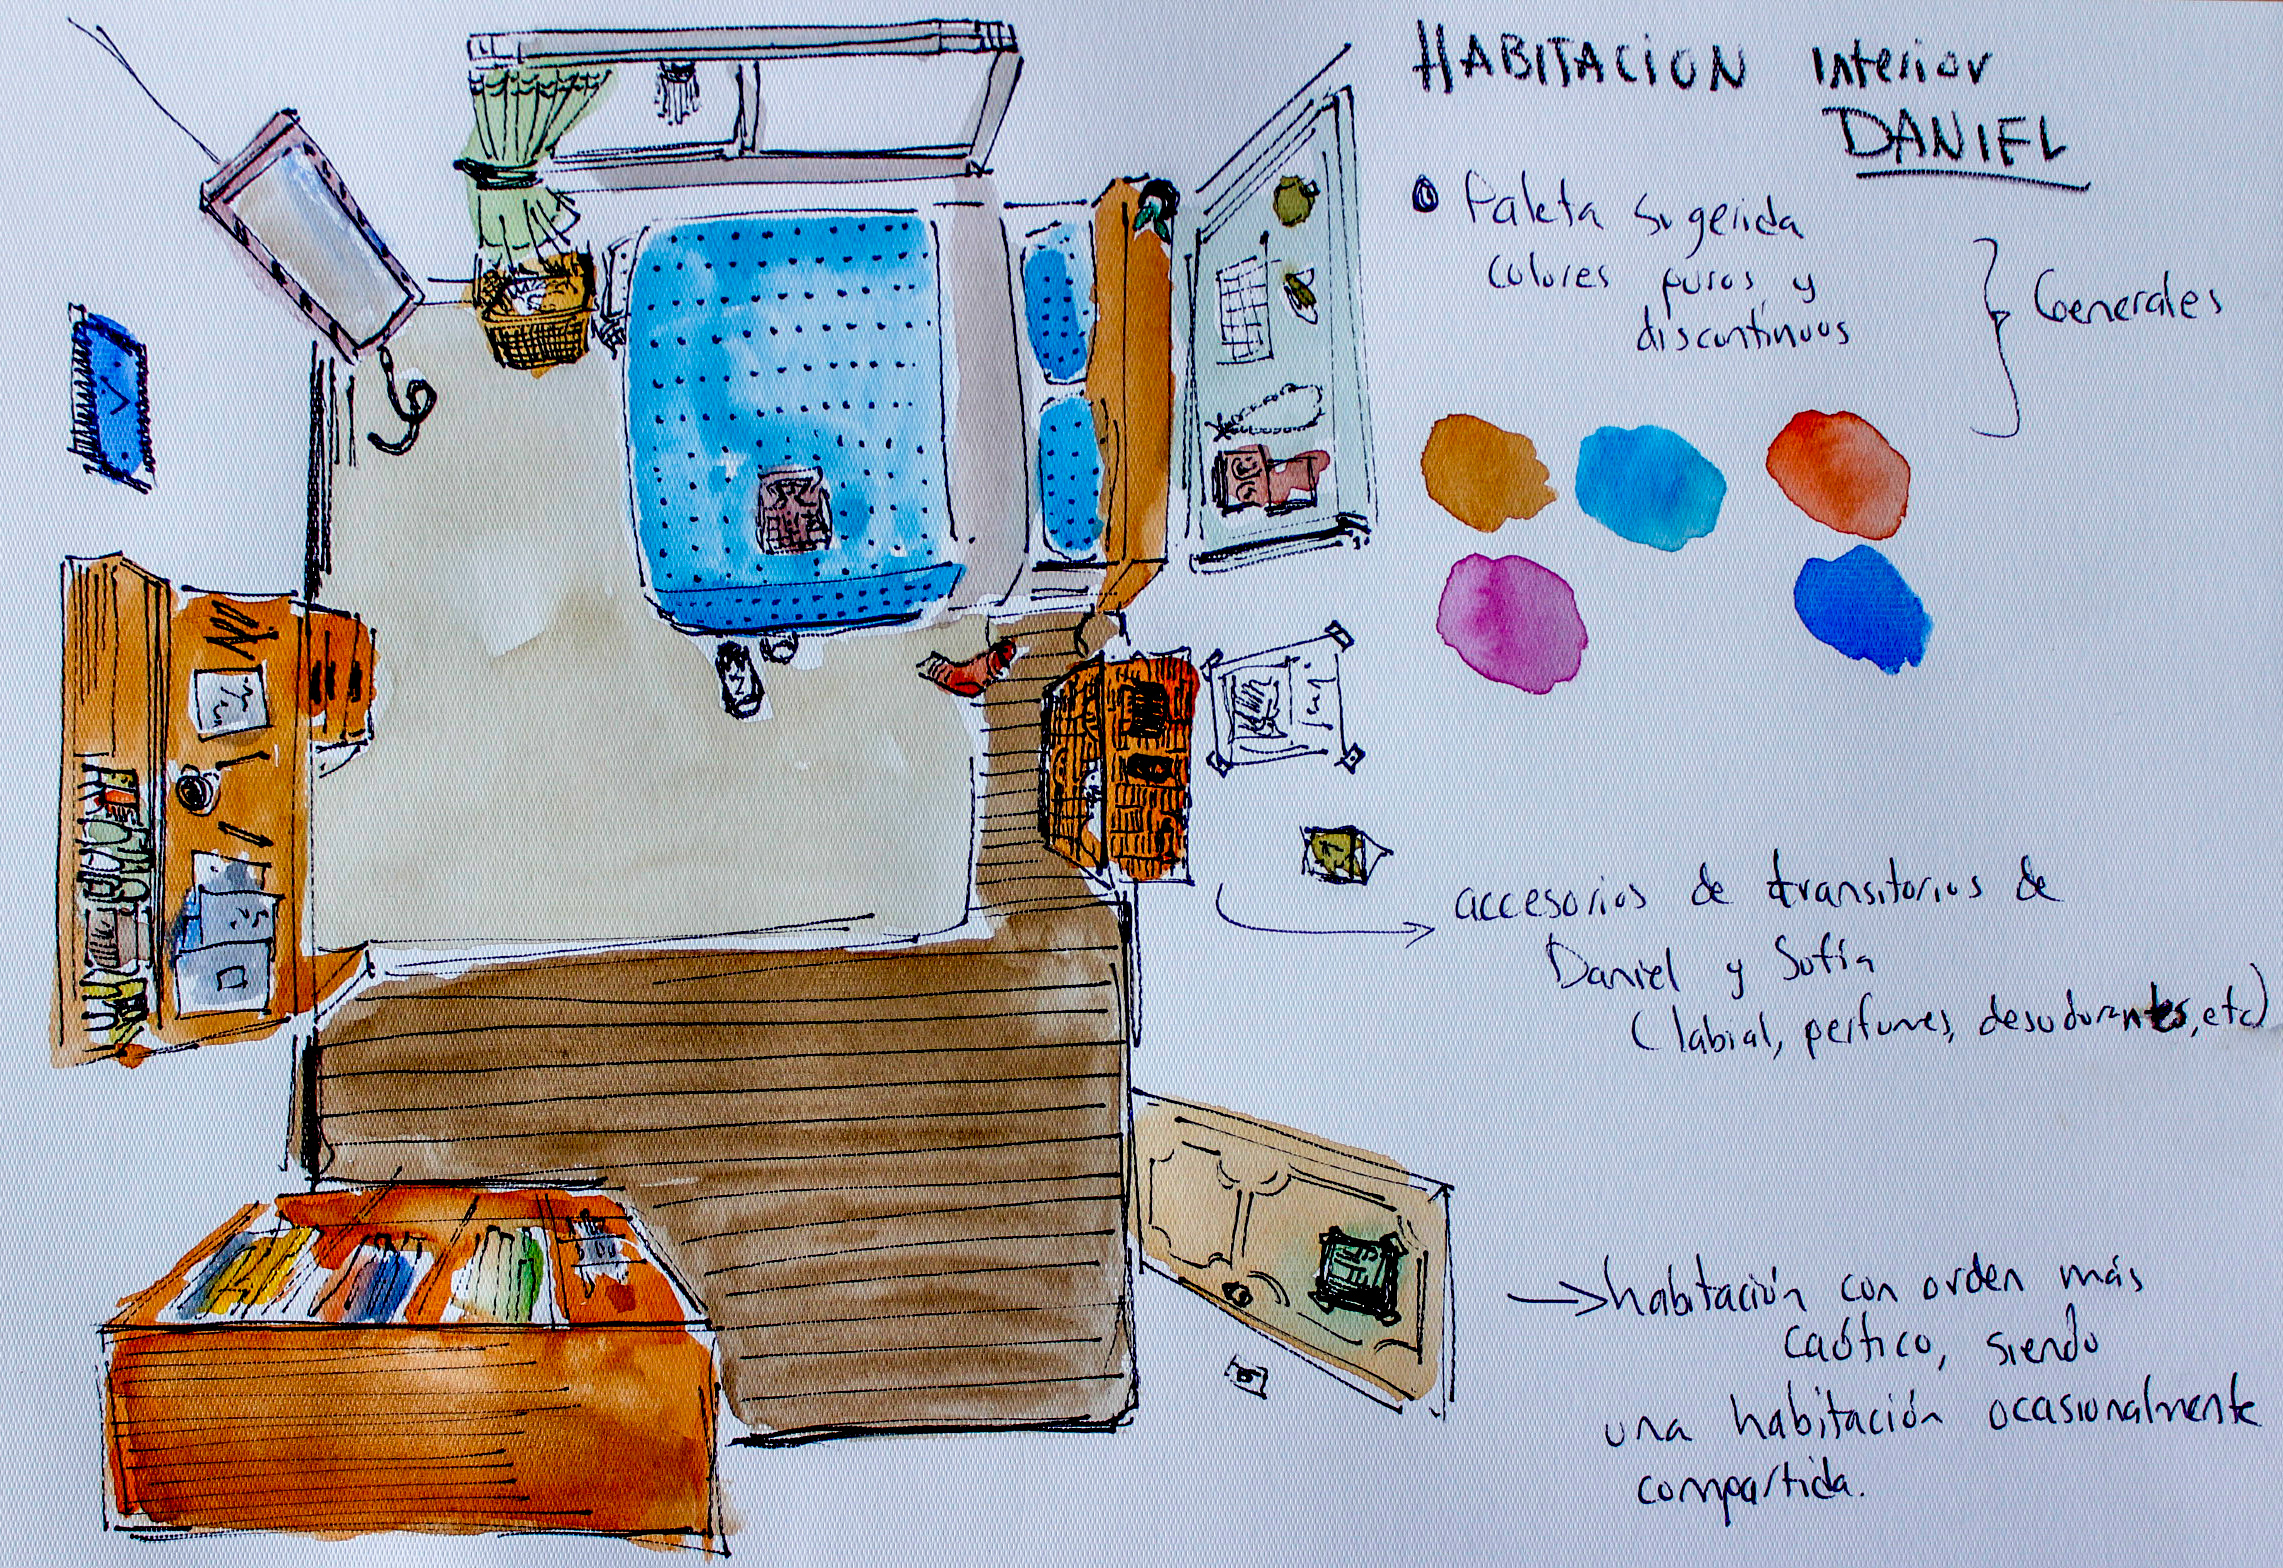 HABITACION Interior
DANIEL
Paleta sugerida
colores puros y
discontínuos
Generales
accesorios de transitorios de
Daniel y Sofía
(labial, perfumes, desodorantes, etc)
habitación con orden más
caótico, siendo
una habitación ocasionalmente
compartida.